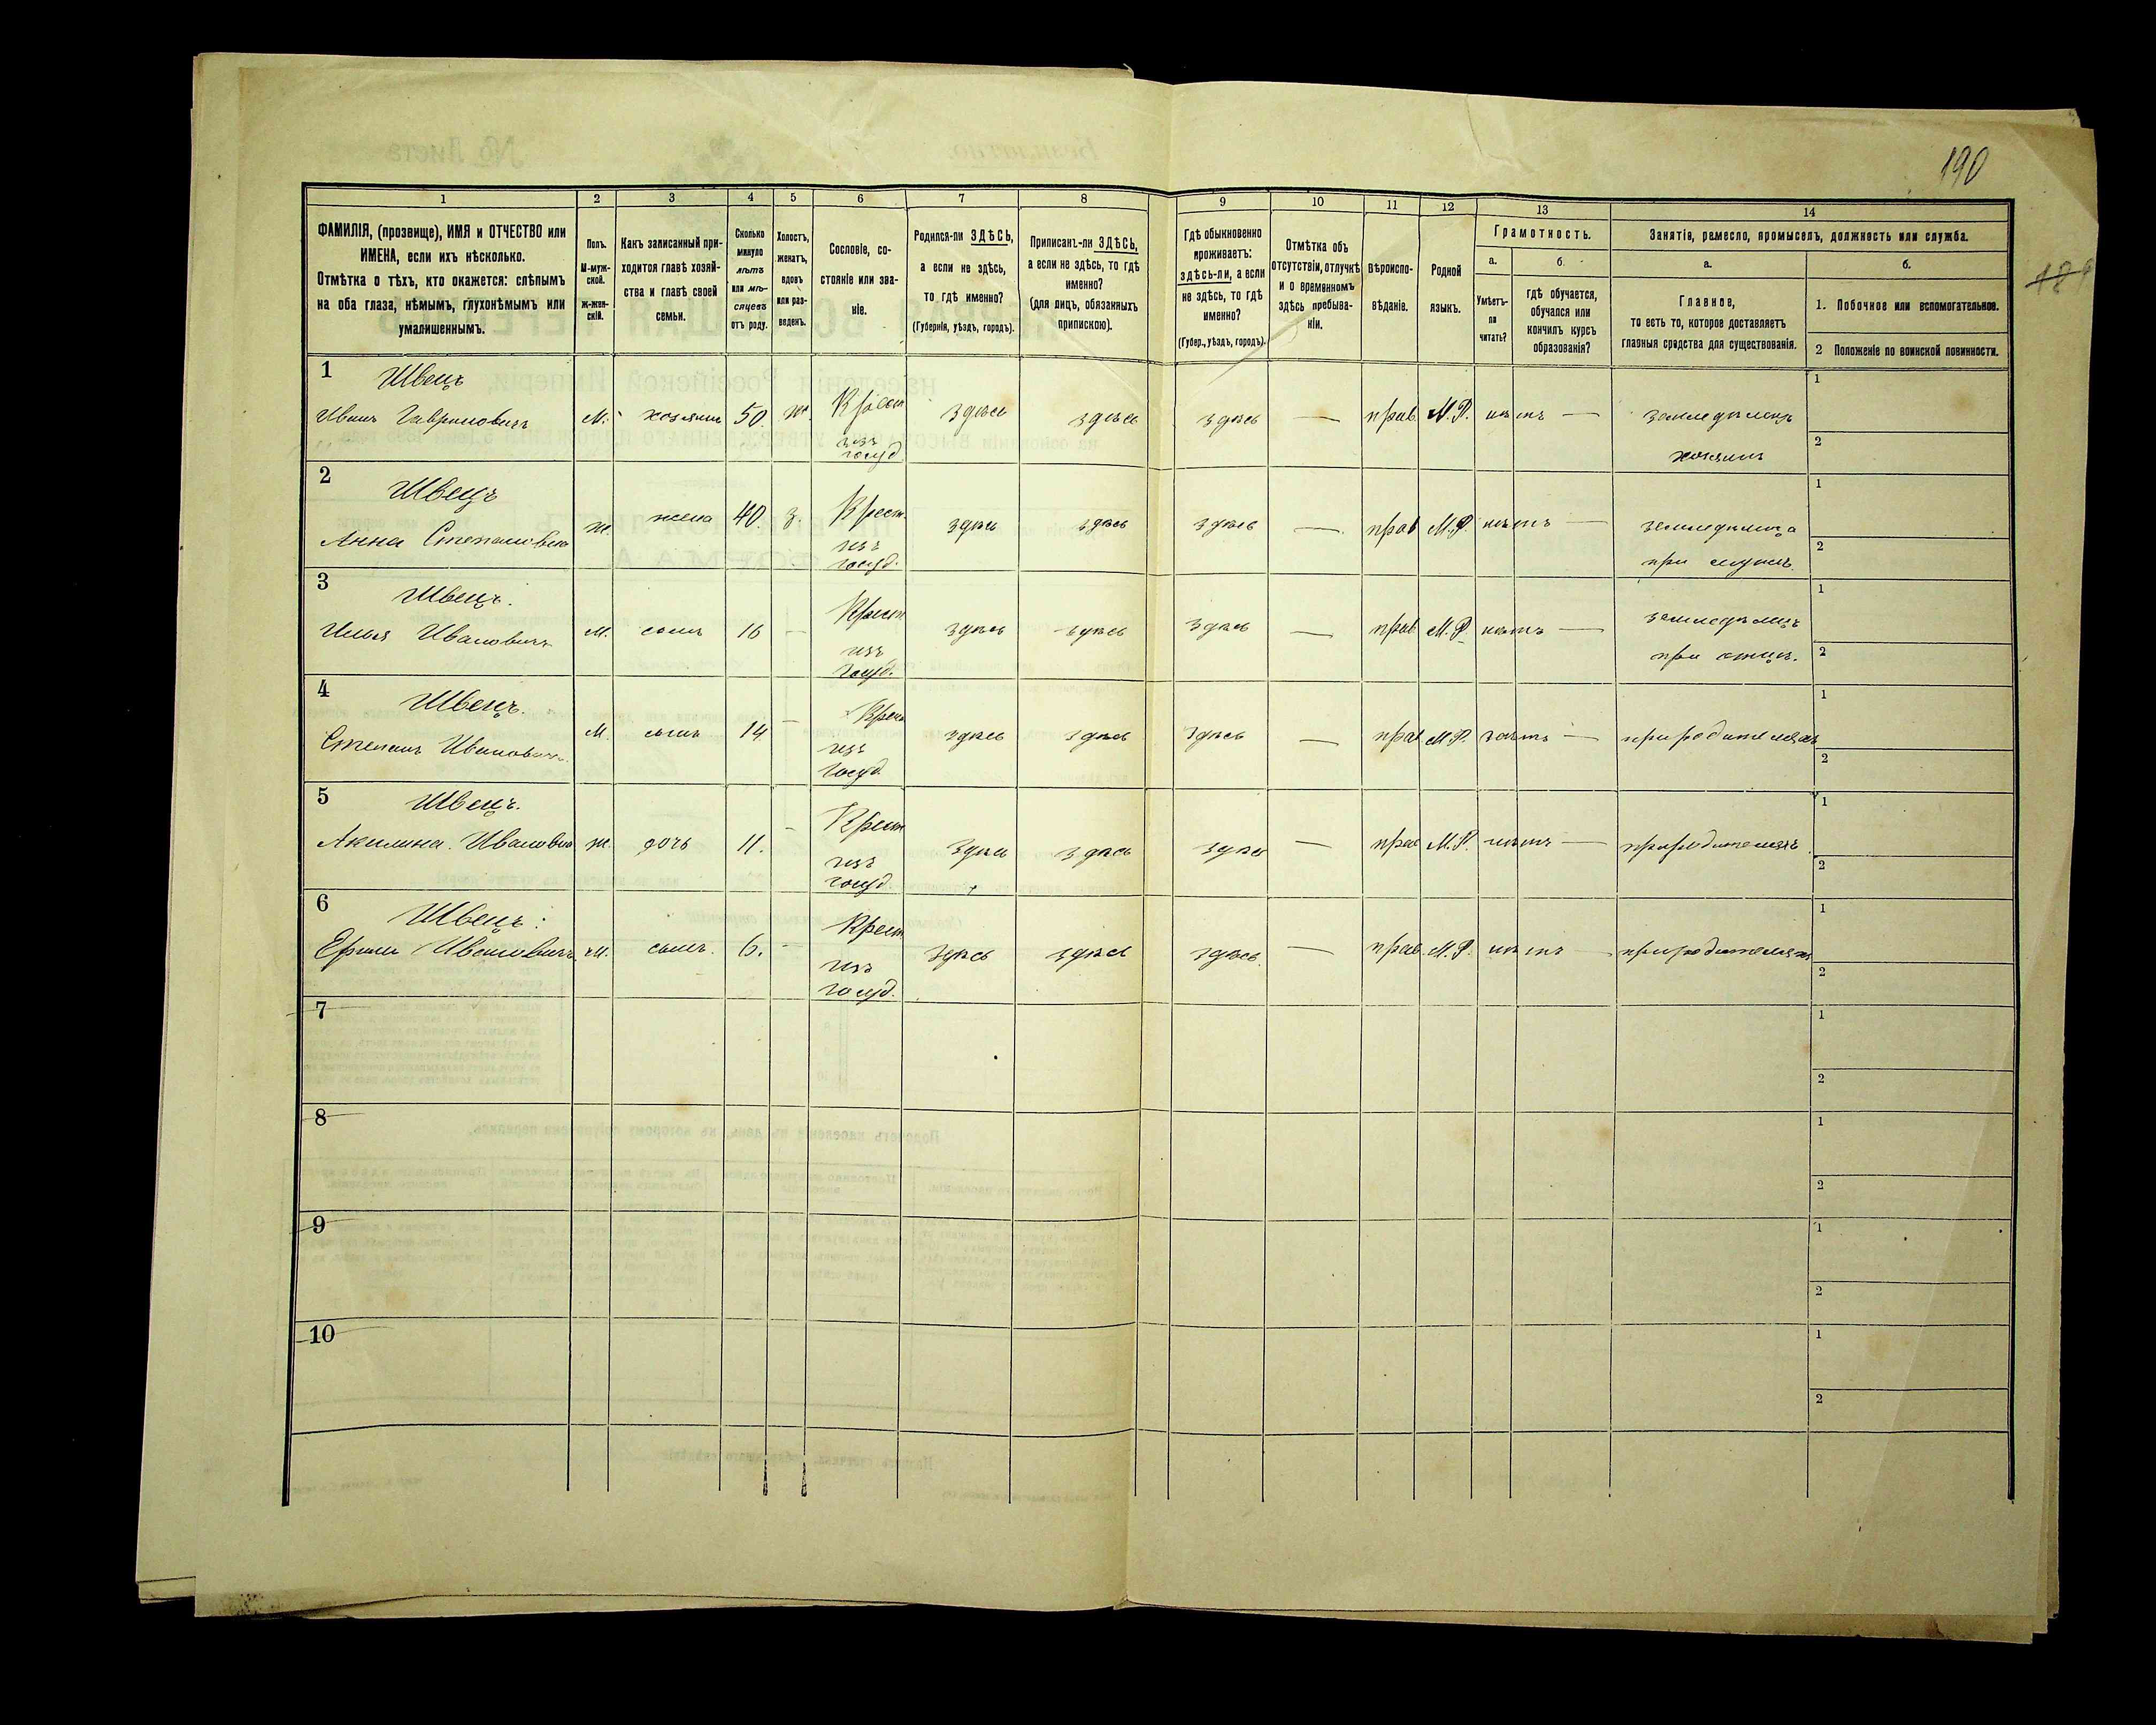 190
189
1 2 3 4 5 6 7 8 9 10 11 12 13 14
ФАМИЛІЯ, (прозвище), ИМЯ и ОТЧЕСТВО или
ИМЕНА, если ихъ нѣсколько.
Отмѣтка о тѣхъ, кто окажется: слѣпымъ
на оба глаза, нѣмымъ, глухонѣмымъ или
умалишеннымъ.
Полъ.
М-муж-
ской.
Ж-жен-
скій.
Какъ записанный при-
ходится главѣ хозяй-
ства и главѣ своей
семьи.
Сколько
минуло
лѣтъ
или мѣ-
сяцевъ
отъ роду.
Холостъ,
женатъ,
вдовъ
или раз-
веденъ.
Сословіе, со-
стояніе или зва-
ніе.
Родился-ли ЗДѢСЬ,
а если не здѣсь,
то гдѣ именно?
(Губернія, уѣздъ, городъ).
Приписанъ-ли ЗДѢСЬ,
а если не здѣсь, то гдѣ
именно?
(для лицъ, обязанныхъ
припискою).
Гдѣ обыкновенно
проживаетъ:
здѣсь-ли, а если
не здѣсь, то гдѣ
именно?
(Губер., уѣздъ, городъ).
Отмѣтка объ
отсутствіи, отлучкѣ
и о временномъ
здѣсь пребыва-
ніи.
Вѣроиспо-
вѣданіе.
Родной
языкъ.
Грамотность.
а.
Умѣетъ-
ли
читать?
б.
гдѣ обучается,
обучался или
кончилъ курсъ
образованія?
Занятія, ремесло, промыселъ, должность или служба.
а.
Главное,
то есть то, которое доставляетъ
главныя средства для существованія.
б.
1. Побочное или вспомогательное.
2 Положеніе по воинской повинности.
1 Швецъ
Иванъ Гавриловичъ М. хозяинъ 50. ж. Крест. здѣсь здѣсь здѣсь — прав. М.Р. нѣтъ — земледѣлецъ 1
изъ
госуд. хозяинъ 2
2 Швецъ
Анна Степановна ж. жена 40. з. Крест. здѣсь здѣсь здѣсь — прав М.Р. нѣтъ — земледѣлица 1
изъ
госуд. при мужѣ. 2
3 Швецъ.
Илья Ивановичъ М. сынъ 16 — Крест здѣсь здѣсь здѣсь — прав М.Р. нѣтъ — земледѣлецъ 1
изъ
госуд. при отцѣ. 2
4 Швецъ.
Степанъ Ивановичъ М. сынъ 14 — Крест здѣсь здѣсь здѣсь — прав М.Р. — при родителяхъ 1
изъ
госуд. 2
5 Швецъ.
Акилина. Ивановна ж. дочь 11. — Крест здѣсь здѣсь здѣсь — прав М.Р. нѣтъ — при родителяхъ. 1
изъ
госуд. 2
6 Швецъ:
Ефимъ Ивановичъ М. сынъ. 6. — Крест здѣсь здѣсь здѣсь. — прав. М.Р. нѣтъ — при родителяхъ 1
изъ
госуд. 2
7 1
2
8 1
2
9 1
2
10 1
2